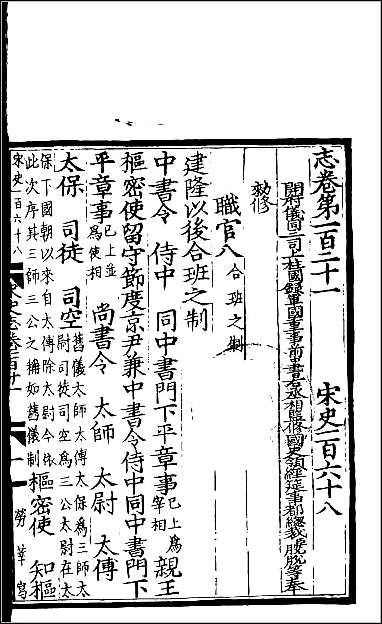 志卷第一百二十一　宋史一百六十八
開府儀同三司上柱國錄軍國重事前中書右丞相監修國史領經筵事都總裁脫脫等奉
勑修
職官八合班之制
建隆以後合班之制
中書令　侍中　同中書門下平章事已上爲宰相親王
樞密使留守節度京尹兼中書令侍中同中書門下
平章事已上並爲使相　尚書令　太師　太尉　太傅
太保　司徒　司空舊儀太師太傅太保爲三師太尉司徒司空爲三公太尉在太
保下國朝以來自太傅除太尉今依此次序其三師三公之稱如舊儀制樞密使　知樞
宋史一百六十八
勞莘寫